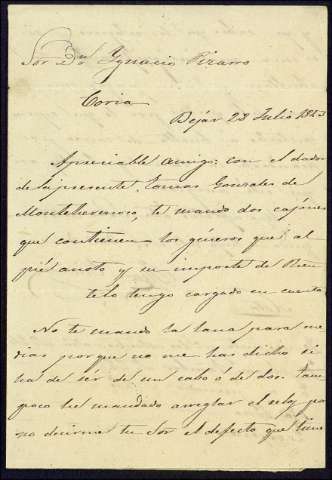 Sor Dn Ygnacio Pizarro
Coria
Bejár 28 Julio 18
Apreciable Amigo: con el dador
de la presente, Tomas Gonzales de
Montehermoso, te mando dos cajones
que contienen los géneros que al
pié anoto y su importe de
te lo tengo cargado en cuenta.
No te mando la lana para me
dias porque no me has dicho si
ha de sér de un cabo ó de dos. Tam
poco he mandado arreglar el reloj po
no decirme tu Sor el defecto que tiene